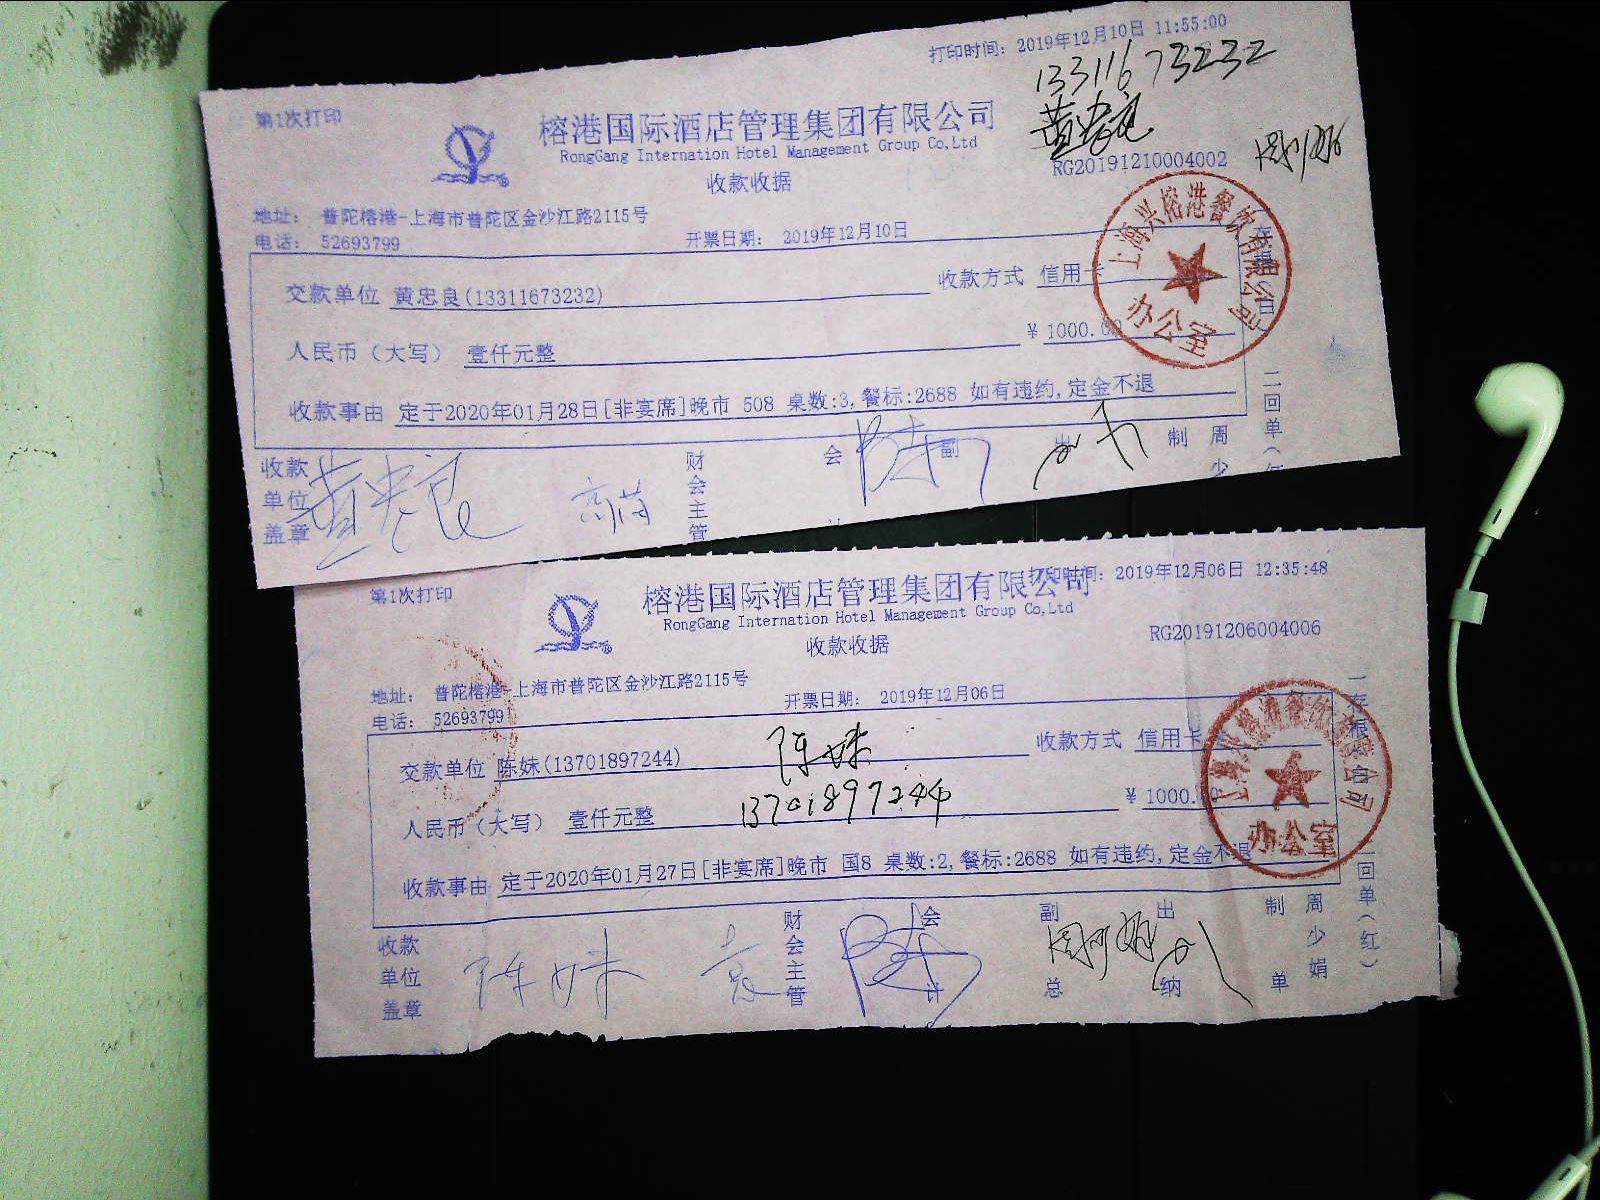 打印时间: 2019年12月10日 11:55:00
13311673232
第1次打印
榕港国际酒店管理集团有限公司
黄忠良
RongGang Internation Hotel Management Group Co,Ltd
收款收据
RG20191210004002
地址: 普陀榕港-上海市普陀区金沙江路2115号
电话: 52693799
开票日期: 2019年12月10日
交款单位 黄忠良(13311673232)
收款方式 信用卡
人民币（大写） 壹仟元整
¥ 1000.00
收款事由 定于2020年01月28日[非宴席]晚市 508 桌数:3,餐标:2688 如有违约,定金不退
上海兴榕港餐饮有限公司
办公室
二回单（
收款单位盖章
黄忠良
财会主管
会
副
出
制
周少
第1次打印
榕港国际酒店管理集团有限公司
打印时间: 2019年12月06日 12:35:48
RongGang Internation Hotel Management Group Co,Ltd
收款收据
RG20191206004006
地址: 普陀榕港-上海市普陀区金沙江路2115号
电话: 52693799
开票日期: 2019年12月06日
陈妹
交款单位 陈妹(13701897244)
收款方式 信用卡
13701897244
人民币（大写） 壹仟元整
¥ 1000.00
收款事由 定于2020年01月27日[非宴席]晚市 国8 桌数:2,餐标:2688 如有违约,定金不退
上海兴榕港餐饮有限公司
办公室
一存根（白
二回单（红）
收款单位盖章
陈妹
财会主管
会计
副总
出纳
制单
周少娟